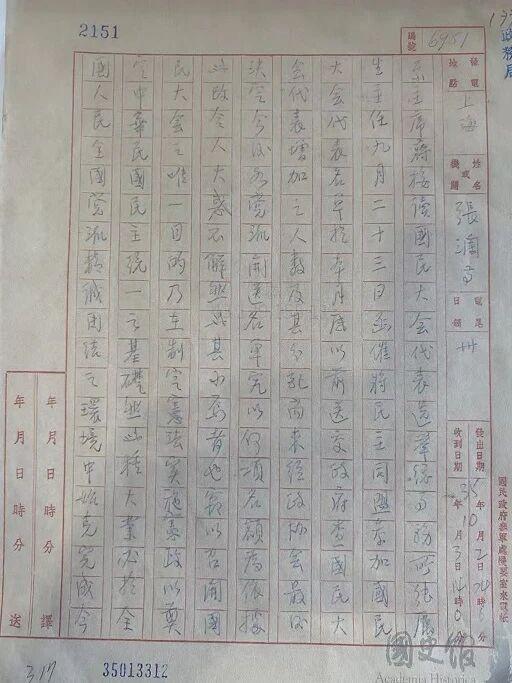 2151
號 6951
政務局
發電地點 上海
姓名或機關 張瀾等
日韻 卅
發出日期 35年10月2日24時分
收到日期 年月3日14時0分
國民政府參軍處機要室來電紙
京主席蔣接讀國民大會代表選舉總事務所張厲
生主任九月二十三日函催將民主同盟參加國民
大會代表名單於本月底以前送交政府查國民大
會代表增加之人數及其分配尚未經政協會最後
決定今後各黨派開送名單究以何項名額為依據
此 令人大惑不解然此其小焉者也竊以召開國
民大會之唯一目的乃在制定憲法實施憲政以奠
定中華民國民主統一之基礎然此種大業必於全
國人民全國黨派精誠團結之環境中始克完成今
年月日時分譯
年月日時分送
35013312
國史館
Academia Historica